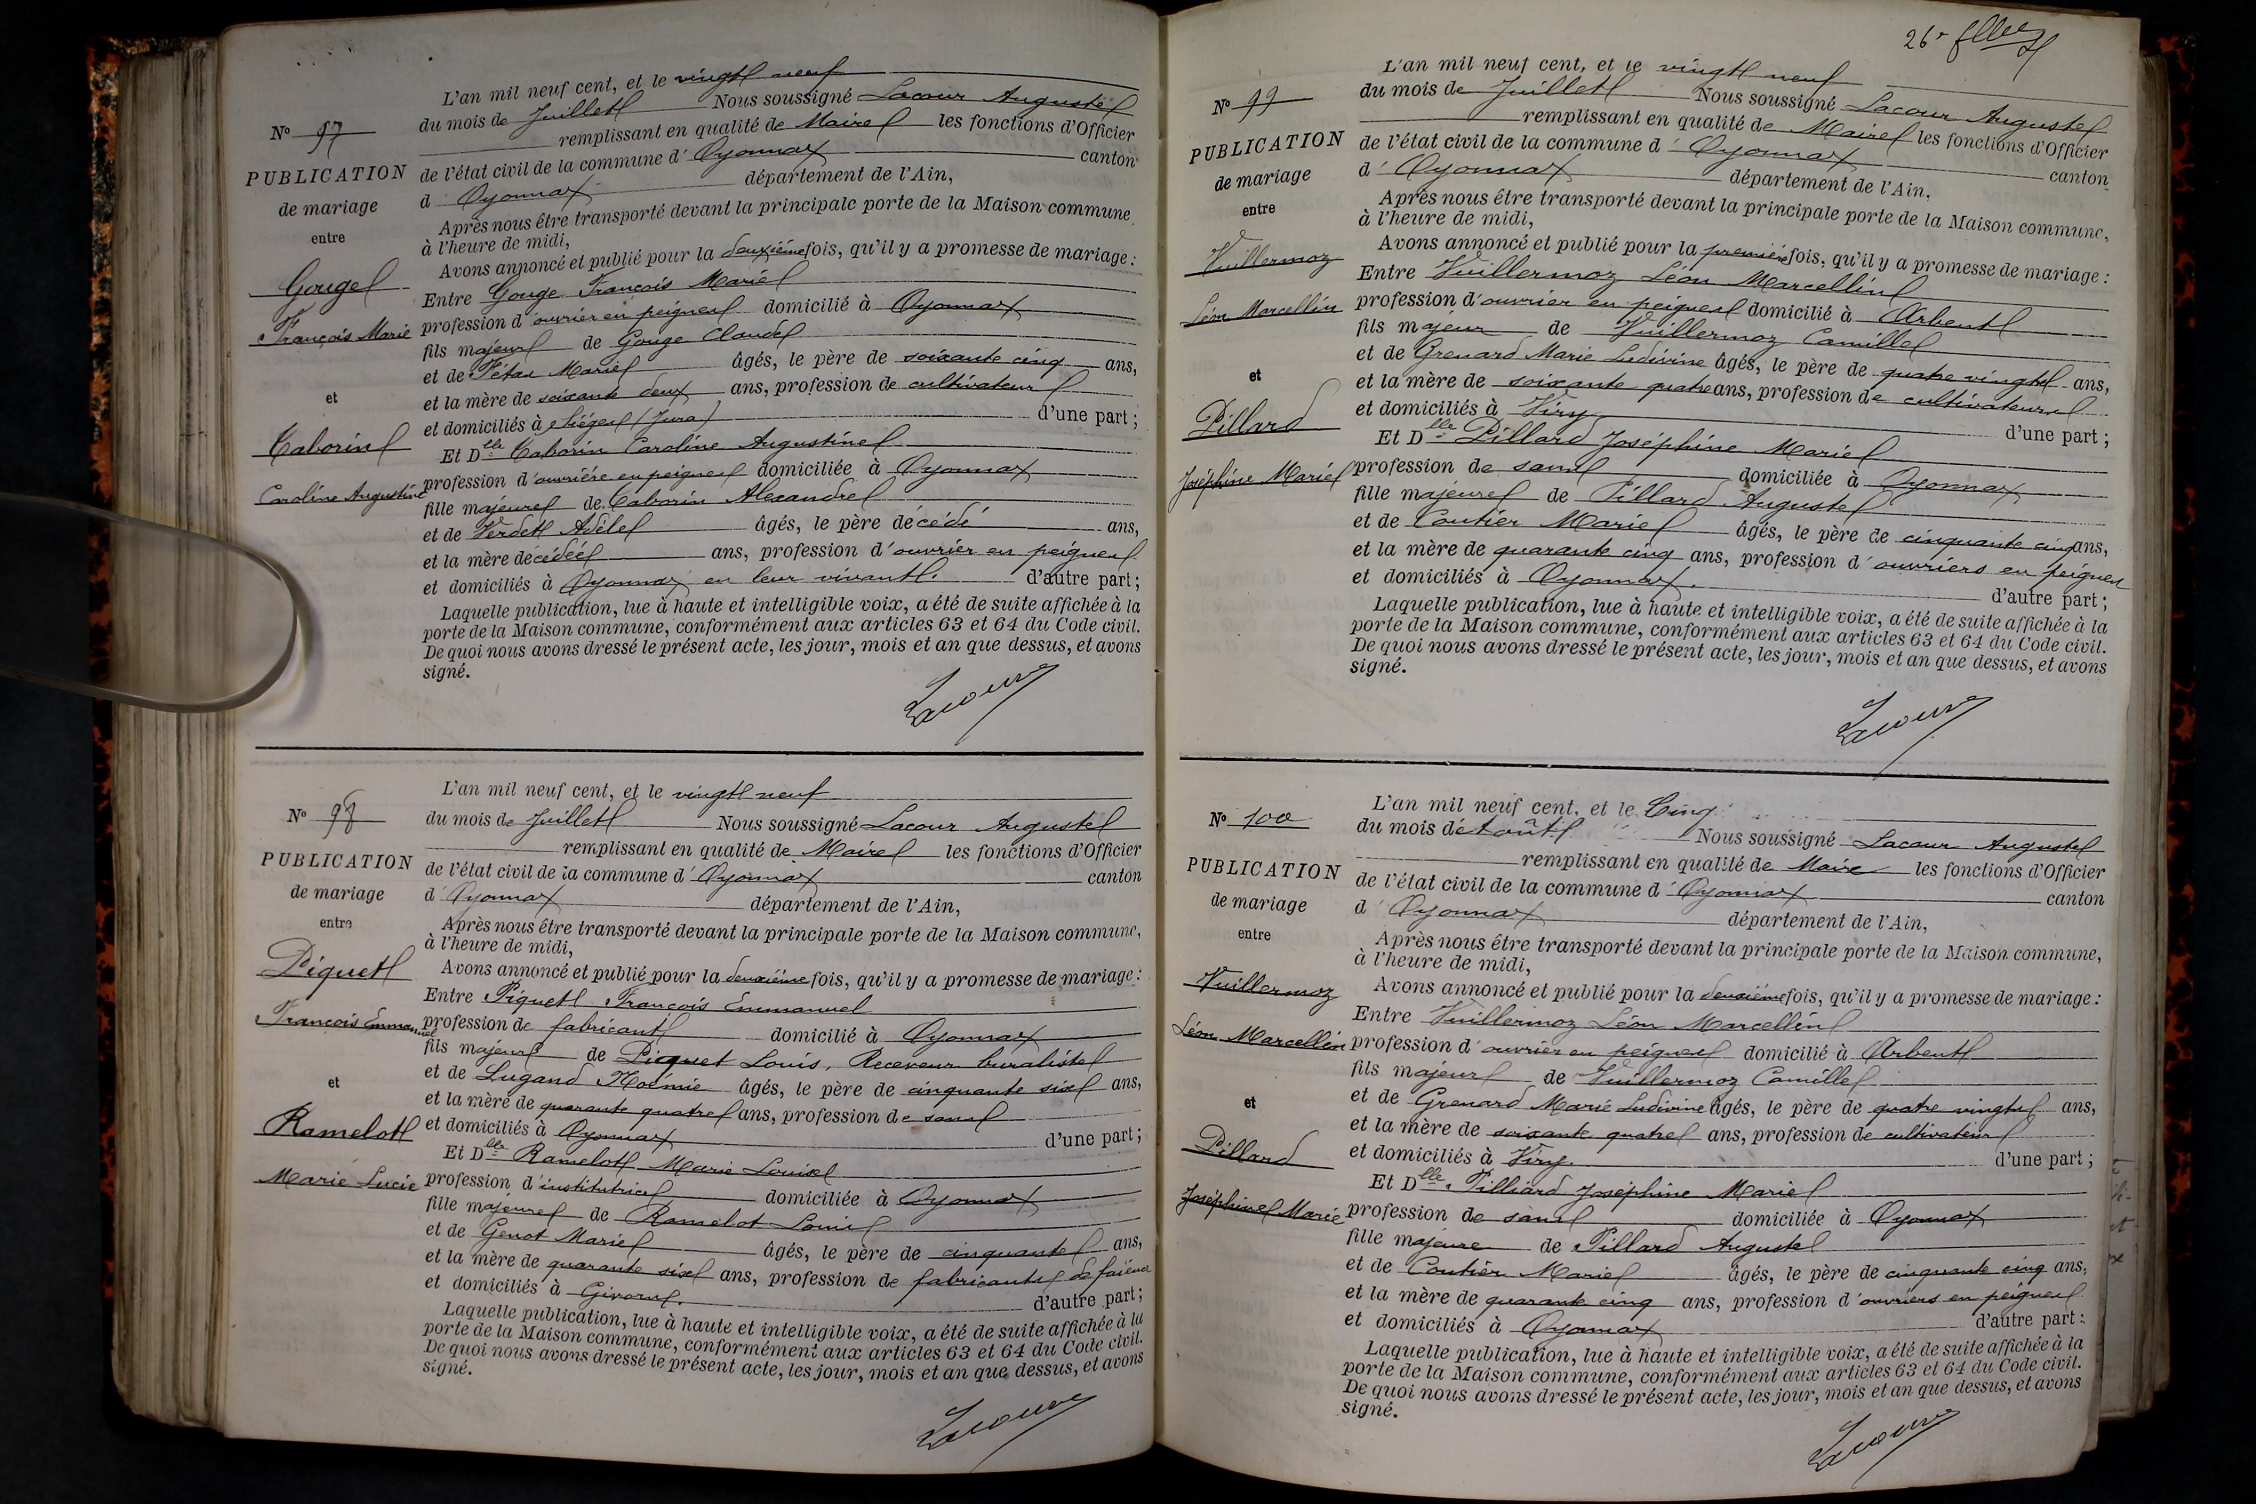 L'an mil neuf cent, et le vingt neuf
du mois de Juillet Nous soussigné Lacour Auguste
remplissant en qualité de Maire les fonctions d'Officier
de l'état civil de la commune d'Oyonnax canton
d'Oyonnax département de l'Ain,
Après nous être transporté devant la principale porte de la Maison commune
à l'heure de midi,
Avons annoncé et publié pour la deuxième fois, qu'il y a promesse de mariage :
Entre Gouge François Marie
profession d'ouvrier en peignes domicilié à Oyonnax
fils majeur de Gouge Claude
et de Tétaz Marie âgés, le père de soixante cinq ans,
et la mère de soixante deux ans, profession de cultivateur
et domiciliés à Siéges (Jura) d'une part ;
Et Dlle Caborin Caroline Augustine
profession d'ouvrière en peignes domiciliée à Oyonnax
fille majeure de Caborin Alexandre
et de Verdet Adèle âgés, le père décédé ans,
et la mère décédée ans, profession d'ouvrier en peignes
et domiciliés à Oyonnax en leur vivant. d'autre part ;
Laquelle publication, lue à haute et intelligible voix, a été de suite affichée à la
porte de la Maison commune, conformément aux articles 63 et 64 du Code civil.
De quoi nous avons dressé le présent acte, les jour, mois et an que dessus, et avons
signé.
Lacour
N° 97
PUBLICATION
de mariage
entre
Gouge
François Marie
et
Caborin
Caroline Augustine
L'an mil neuf cent, et le vingt neuf
du mois de Juillet Nous soussigné Lacour Auguste
remplissant en qualité de Maire les fonctions d'Officier
de l'état civil de la commune d'Oyonnax canton
d'Oyonnax département de l'Ain,
Après nous être transporté devant la principale porte de la Maison commune,
à l'heure de midi,
Avons annoncé et publié pour la deuxième fois, qu'il y a promesse de mariage :
Entre Piquet François Emmanuel
profession de fabricant domicilié à Oyonnax
fils majeur de Piquet Louis, Receveur buraliste
et de Lugand Noémie âgés, le père de cinquante six ans,
et la mère de quarante quatre ans, profession de sans
et domiciliés à Oyonnax d'une part ;
Et Dlle Ramelot Marie Louise
profession d'institutrice domiciliée à Oyonnax
fille majeure de Ramelot Louis
et de Genot Marie âgés, le père de cinquante ans,
et la mère de quarante six ans, profession de fabricants de faïence
et domiciliés à Givors. d'autre part ;
Laquelle publication, lue à haute et intelligible voix, a été de suite affichée à la
porte de la Maison commune, conformément aux articles 63 et 64 du Code civil.
De quoi nous avons dressé le présent acte, les jour, mois et an que dessus, et avons
signé.
Lacour
N° 98
PUBLICATION
de mariage
entre
Piquet
François Emmanuel
et
Ramelot
Marie Lucie
26e
L'an mil neuf cent, et le vingt neuf
du mois de Juillet Nous soussigné Lacour Auguste
remplissant en qualité de Maire les fonctions d'Officier
de l'état civil de la commune d'Oyonnax canton
d'Oyonnax département de l'Ain,
Après nous être transporté devant la principale porte de la Maison commune,
à l'heure de midi,
Avons annoncé et publié pour la première fois, qu'il y a promesse de mariage :
Entre Vuillermoz Léon Marcellin
profession d'ouvrier en peignes domicilié à Arbent
fils majeur de Vuillermoz Camille
et de Grenard Marie Ludivine âgés, le père de quatre vingt ans,
et la mère de soixante quatre ans, profession de cultivateurs
et domiciliés à Viry d'une part ;
Et Dlle Pillard Joséphine Marie
profession de sans domiciliée à Oyonnax
fille majeure de Pillard Auguste
et de Coutier Marie âgés, le père de cinquante cinq ans,
et la mère de quarante cinq ans, profession d'ouvriers en peignes
et domiciliés à Oyonnax. d'autre part ;
Laquelle publication, lue à haute et intelligible voix, a été de suite affichée à la
porte de la Maison commune, conformément aux articles 63 et 64 du Code civil.
De quoi nous avons dressé le présent acte, les jour, mois et an que dessus, et avons
signé.
Lacour
N° 99
PUBLICATION
de mariage
entre
Vuillermoz
Léon Marcellin
et
Pillard
Joséphine Marie
L'an mil neuf cent, et le Cinq
du mois d'Août Nous soussigné Lacour Auguste
remplissant en qualité de Maire les fonctions d'Officier
de l'état civil de la commune d'Oyonnax canton
d'Oyonnax département de l'Ain,
Après nous être transporté devant la principale porte de la Maison commune,
à l'heure de midi,
Avons annoncé et publié pour la deuxième fois, qu'il y a promesse de mariage :
Entre Vuillermoz Léon Marcellin
profession d'ouvrier en peignes domicilié à Arbent
fils majeur de Vuillermoz Camille
et de Grenard Marie Ludivine âgés, le père de quatre vingts ans,
et la mère de soixante quatre ans, profession de cultivateur
et domiciliés à Viry. d'une part ;
Et Dlle Pilliard Joséphine Marie
profession de sans domiciliée à Oyonnax
fille majeure de Pillard Auguste
et de Coutier Marie âgés, le père de cinquante cinq ans,
et la mère de quarante cinq ans, profession d'ouvriers en peignes
et domiciliés à Oyonnax d'autre part ;
Laquelle publication, lue à haute et intelligible voix, a été de suite affichée à la
porte de la Maison commune, conformément aux articles 63 et 64 du Code civil.
De quoi nous avons dressé le présent acte, les jour, mois et an que dessus, et avons
signé.
Lacour
N° 100
PUBLICATION
de mariage
entre
Vuillermoz
Léon Marcellin
et
Pillard
Joséphine Marie